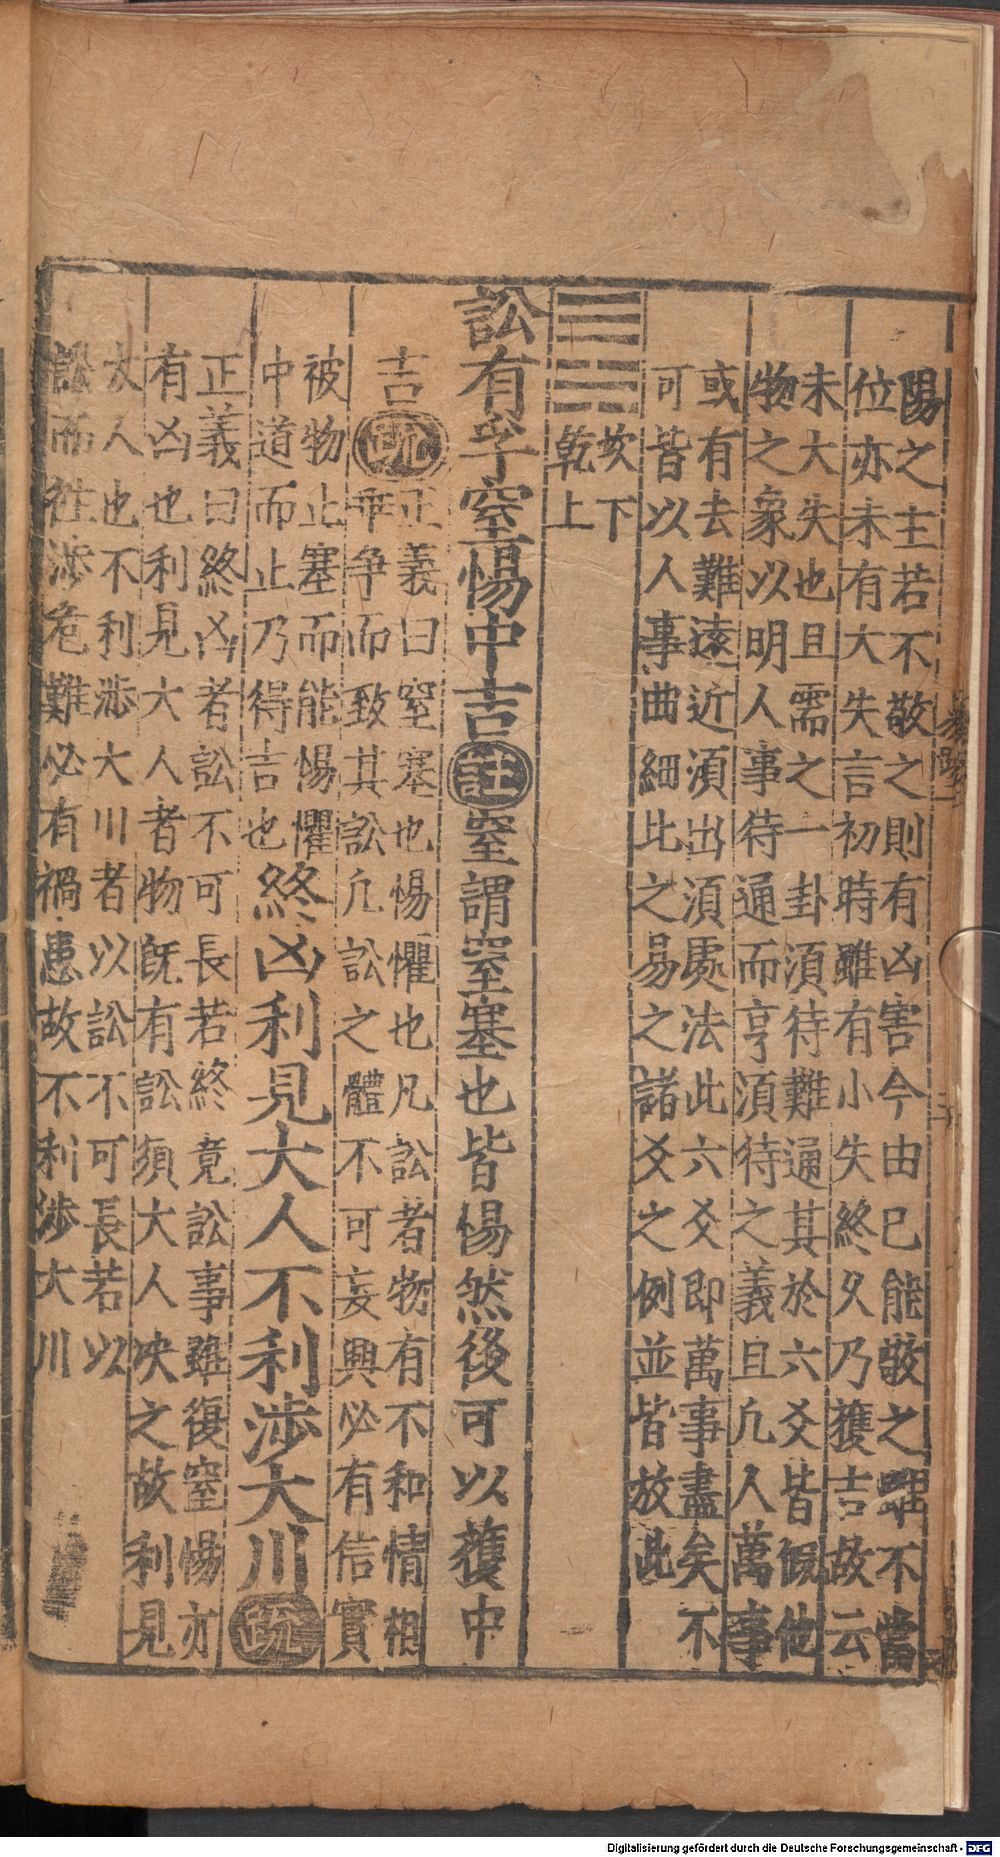 陽之主若不敬之則有凶害今由已能敬之雖不當
位亦未有大失言初時雖有小失終久乃獲吉故云
未大失也且需之一卦湏待難通其於六爻皆假他
物之象以明人事待通而亨湏待之義且凢人萬事
或有去難遠近湏出湏處法此六爻即萬事盡矣不
可皆以人事曲細比之易之諸爻之例並皆放此
坎下
乾上
訟有孚窒惕中吉註窒謂窒塞也皆惕然後可以獲中
吉疏
正義曰窒塞也惕懼也凡訟者物有不和情相
乖争而致其訟凢訟之體不可妄興必有信實
被物止塞而能惕懼
中道而止乃得吉也
終凶利見大人不利涉大川疏
正義曰終凶者訟不可長若終竟訟事雖復窒惕亦
有凶也利見大人者物旣有訟須大人决之故利見
大人也不利涉大川者以訟不可長若以
訟而往涉危難必有禍患故不利涉大川
Digitalisierung gefördert durch die Deutsche Forschungsgemeinschaft - DFG